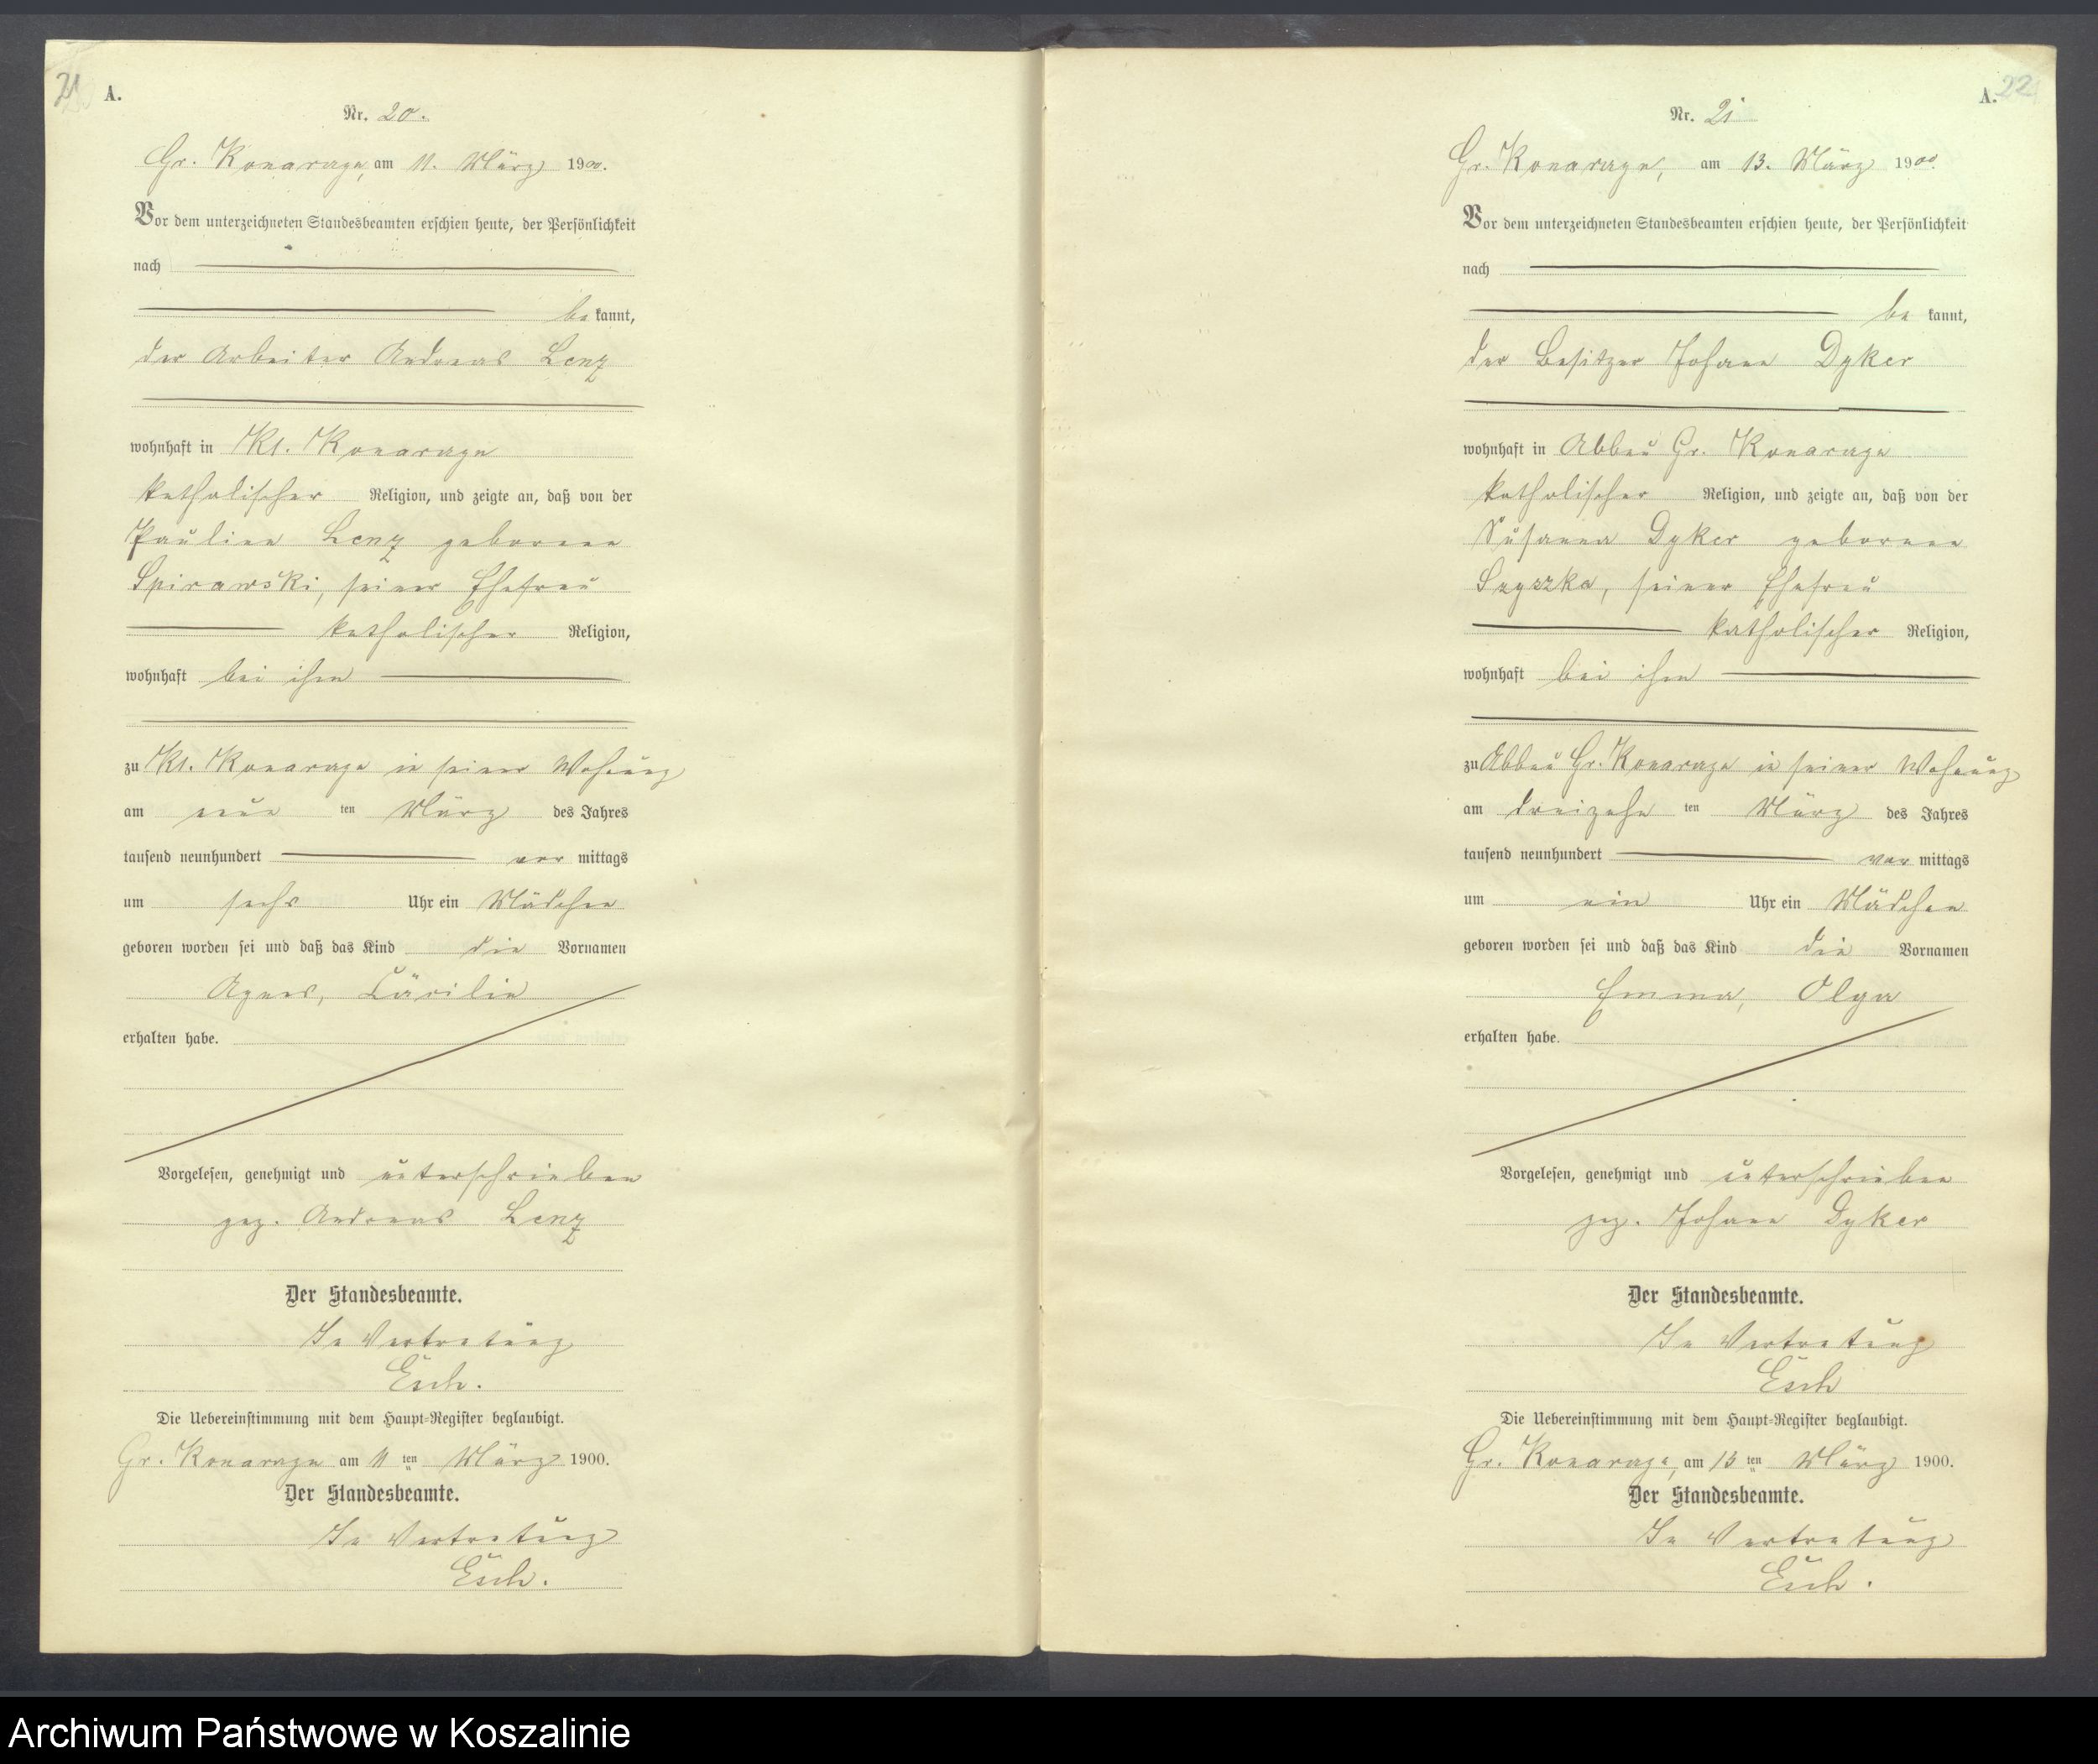 21
A.
Nr. 20.
Gr. Konarczyn, am 11. März 1900.
Vor dem unterzeichneten Standesbeamten erschien heute, der Persönlichkeit
nach
be kannt,
der Arbeiter Andreas Lenz
wohnhaft in Kl. Konarczyn
katholischer Religion, und zeigte an, daß von der
Pauline Lenz geborene
Spirawski, seiner Ehefrau
katholischer Religion,
wohnhaft bei ihm
zu Kl. in seiner Wohnung
am neun ten März des Jahres
tausend neunhundert vor mittags
um sechs Uhr ein Mädchen
geboren worden sei und daß das Kind die Vornamen
Agnes, Cäcilie
erhalten habe.
Vorgelesen, genehmigt und unterschrieben
gez. Andreas Lenz
Der Standesbeamte.
In Vertretung
Esch.
Die Uebereinstimmung mit dem Haupt-Register beglaubigt.
Gr. am 11 ten März 1900.
Der Standesbeamte.
In Vertretung
Esch.
A. 22
Nr. 21
Gr. am 13. März 1900.
Vor dem unterzeichneten Standesbeamten erschien heute, der Persönlichkeit
nach
be kannt,
der Besitzer Johann Dyker
wohnhaft in Abbau Gr.
katholischer Religion, und zeigte an, daß von der
Susanna Dyker geborene
Szyszka, seiner Ehefrau
katholischer Religion,
wohnhaft bei ihm
zu Abbau Gr. in seiner Wohnung
am dreizehn ten März des Jahres
tausend neunhundert vor mittags
um ein Uhr ein Mädchen
geboren worden sei und daß das Kind die Vornamen
Emma, Olga
erhalten habe.
Vorgelesen, genehmigt und unterschrieben
gez. Johann Dyker
Der Standesbeamte.
In Vertretung
Esch
Die Uebereinstimmung mit dem Haupt-Register beglaubigt.
Gr. am 13 ten März 1900.
Der Standesbeamte.
In Vertretung
Esch.
Archiwum Państwowe w Koszalinie